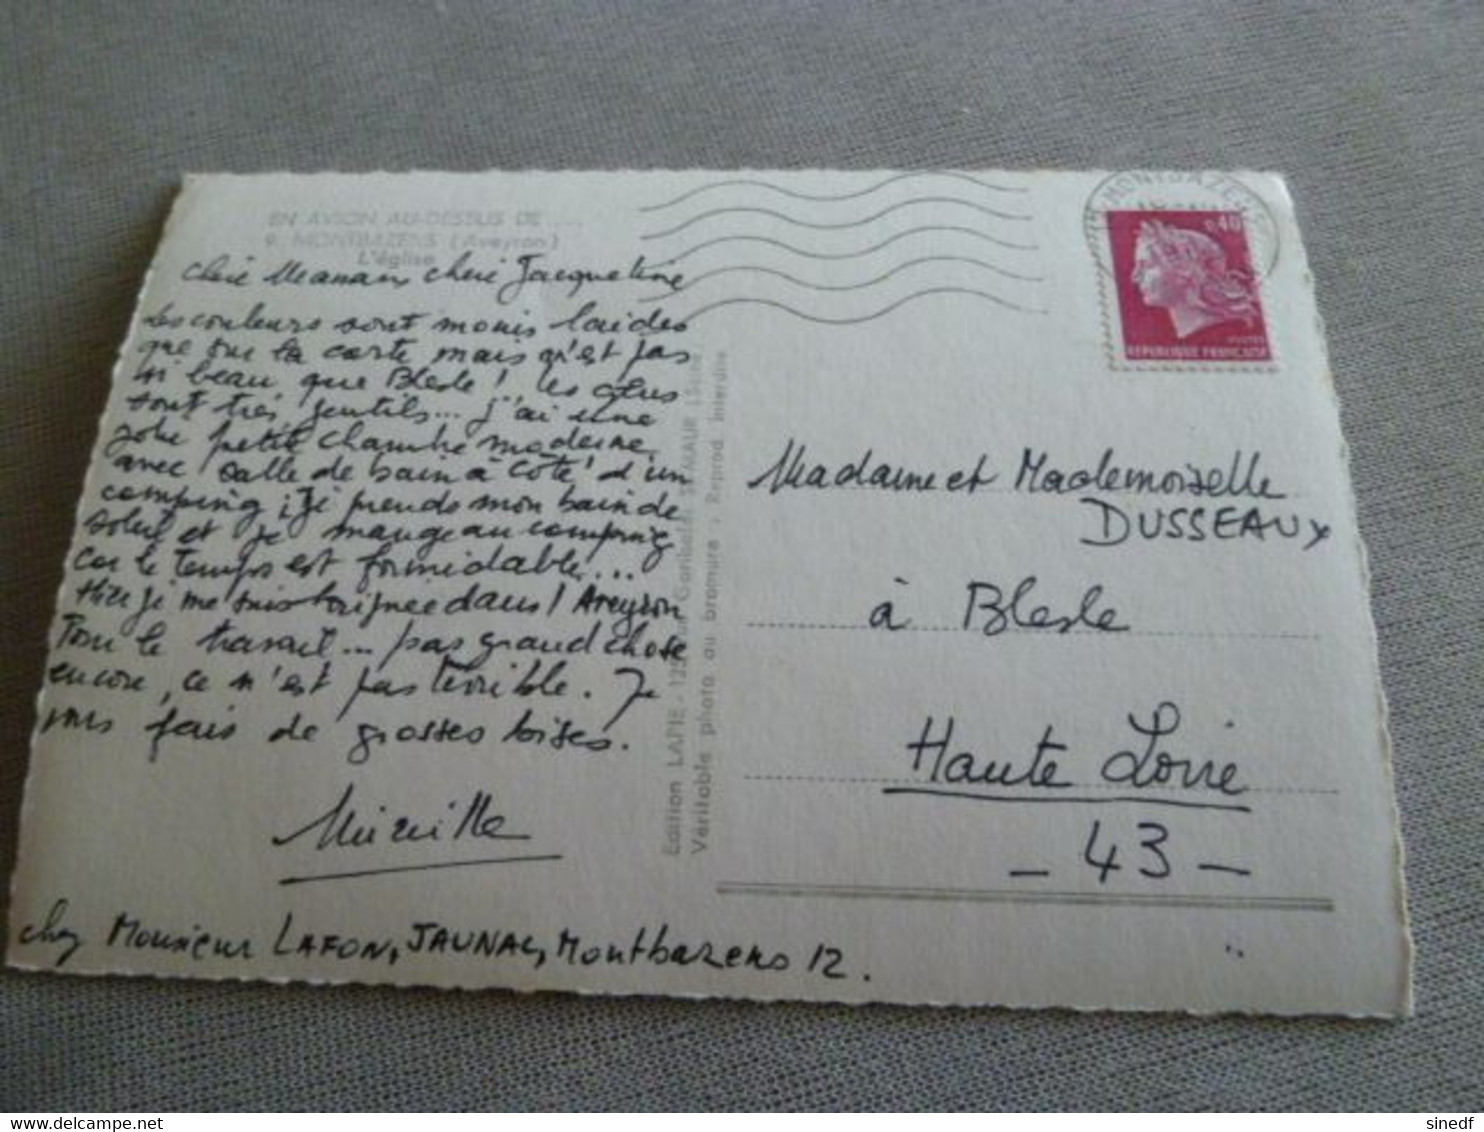 EN AVION AU-DESSUS DE ....
9. MONTBAZENS (Aveyron)
L'église
Chère Maman chère Jacqueline
Les couleurs sont moins laides
que sur la carte mais qu'est pas
si beau que Blesle! les
sont très gentils... j'ai une
jolie petite chambre moderne,
avec salle de bain à côté d'un
camping ; je prends mon bain de
soleil et je mange au camping
car le temps est formidable...
Hier je me suis baignée dans l'Aveyron
Pour le travail... pas grand chose
encore, ce n'est pas terrible. Je
vous fais de grosses bises.
Mireille
chez Monsieur LAFON, JAUNAC, Montbazens 12.
Edition LAPIE - ST-MAUR (Seine)
Véritable photo au bromure - Reprod. interdite
MONTBAZENS
0,40
POSTES
REPUBLIQUE FRANÇAISE
Madame et Mademoiselle
DUSSEAUX
à Blesle
Haute Loire
- 43 -
delcampe.net
sinedf